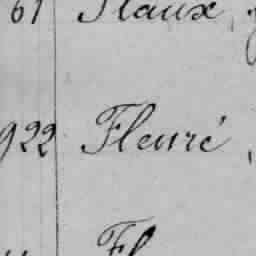 61 Flaux,
922 Fleuré,
Fl